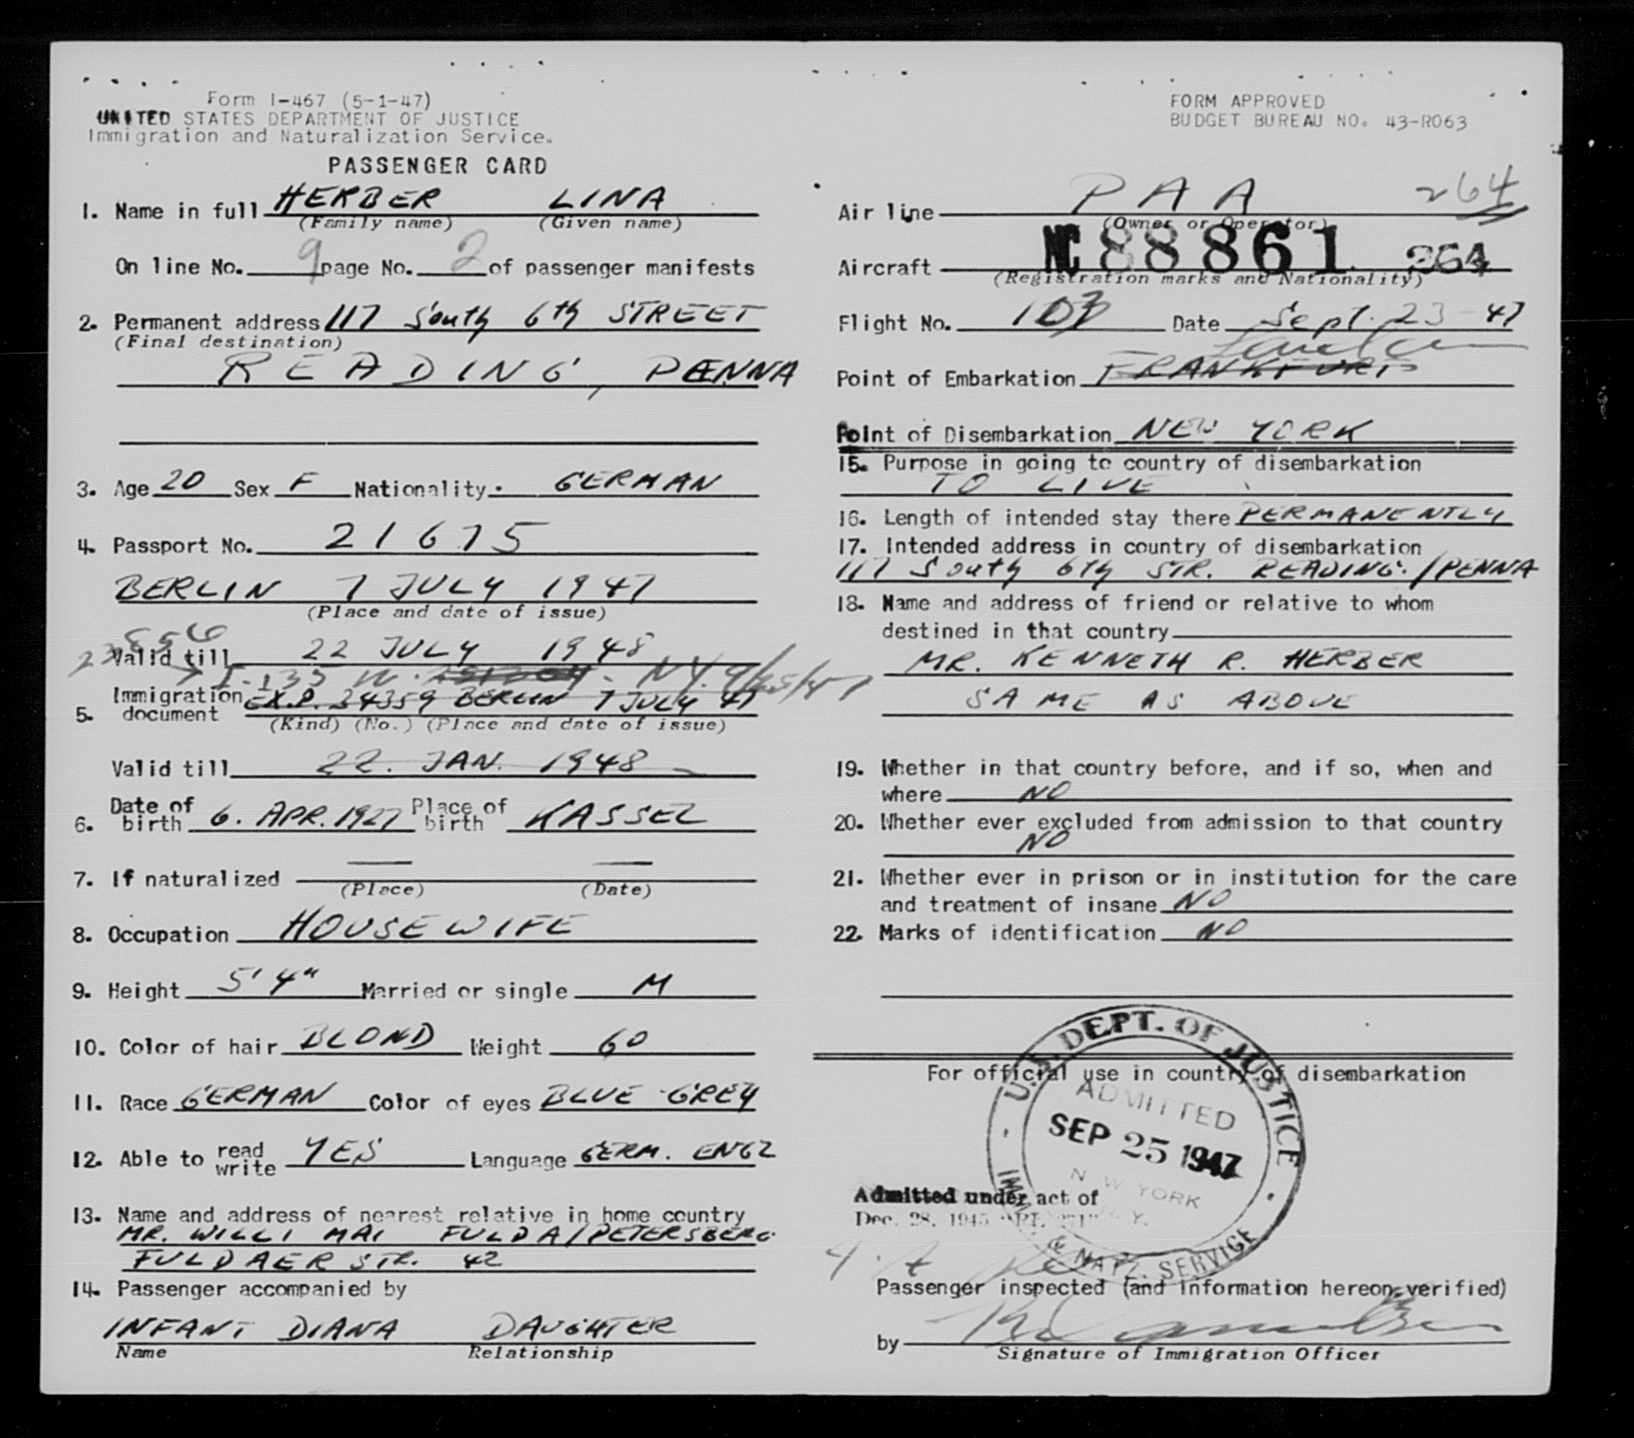 Form I-467 (5-1-47)
UNITED STATES DEPARTMENT OF JUSTICE
Immigration and Naturalization Service.
PASSENGER CARD
1. Name in full HERBER LINA
(Family name) (Given name)
On line No. 9 page No. 2 of passenger manifests
2. Permanent address 117 South 6th STREET
(Final destination)
READING, PENNA
3. Age 20 Sex F Nationality. GERMAN
4. Passport No. 21675
BERLIN 7 JULY 1947
(Place and date of issue)
Valid till 22 JULY 1948
I-135 N.Y. 9/25/47
5. Immigration document EX.P. 34359 BERLIN 7 JULY 47
(Kind) (No.) (Place and date of issue)
Valid till 22. JAN. 1948
6. Date of birth 6. APR. 1927 Place of birth KASSEL
7. If naturalized — —
(Place) (Date)
8. Occupation HOUSEWIFE
9. Height 5'4" Married or single M
10. Color of hair BLOND Weight 60
11. Race GERMAN Color of eyes BLUE-GREY
12. Able to read write YES Language GERM. ENGL
13. Name and address of nearest relative in home country
MR. WILLI MAI FULDA/PETERSBERG
FULDAER STR. 42
14. Passenger accompanied by
INFANT DIANA DAUGHTER
Name Relationship
FORM APPROVED
BUDGET BUREAU NO. 43-R063
264
Air line PAA
(Owner or Operator)
Aircraft NC 88861 264
(Registration marks and Nationality)
Flight No. 103 Date Sept. 23-47
Point of Embarkation FRANKFURT
Point of Disembarkation NEW YORK
15. Purpose in going to country of disembarkation
TO LIVE
16. Length of intended stay there PERMANENTLY
17. Intended address in country of disembarkation
117 South 6th STR. READING./PENNA
18. Name and address of friend or relative to whom
destined in that country
MR. KENNETH R. HERBER
SAME AS ABOVE
19. Whether in that country before, and if so, when and
where NO
20. Whether ever excluded from admission to that country
NO
21. Whether ever in prison or in institution for the care
and treatment of insane NO
22. Marks of identification NO
For official use in country of disembarkation
U.S. DEPT. OF JUSTICE
ADMITTED
SEP 25 1947
NEW YORK
N.Y.
IMM. & NATZ. SERVICE
Admitted under act of
Dec. 28, 1945
Passenger inspected (and information hereon verified)
by
Signature of Immigration Officer